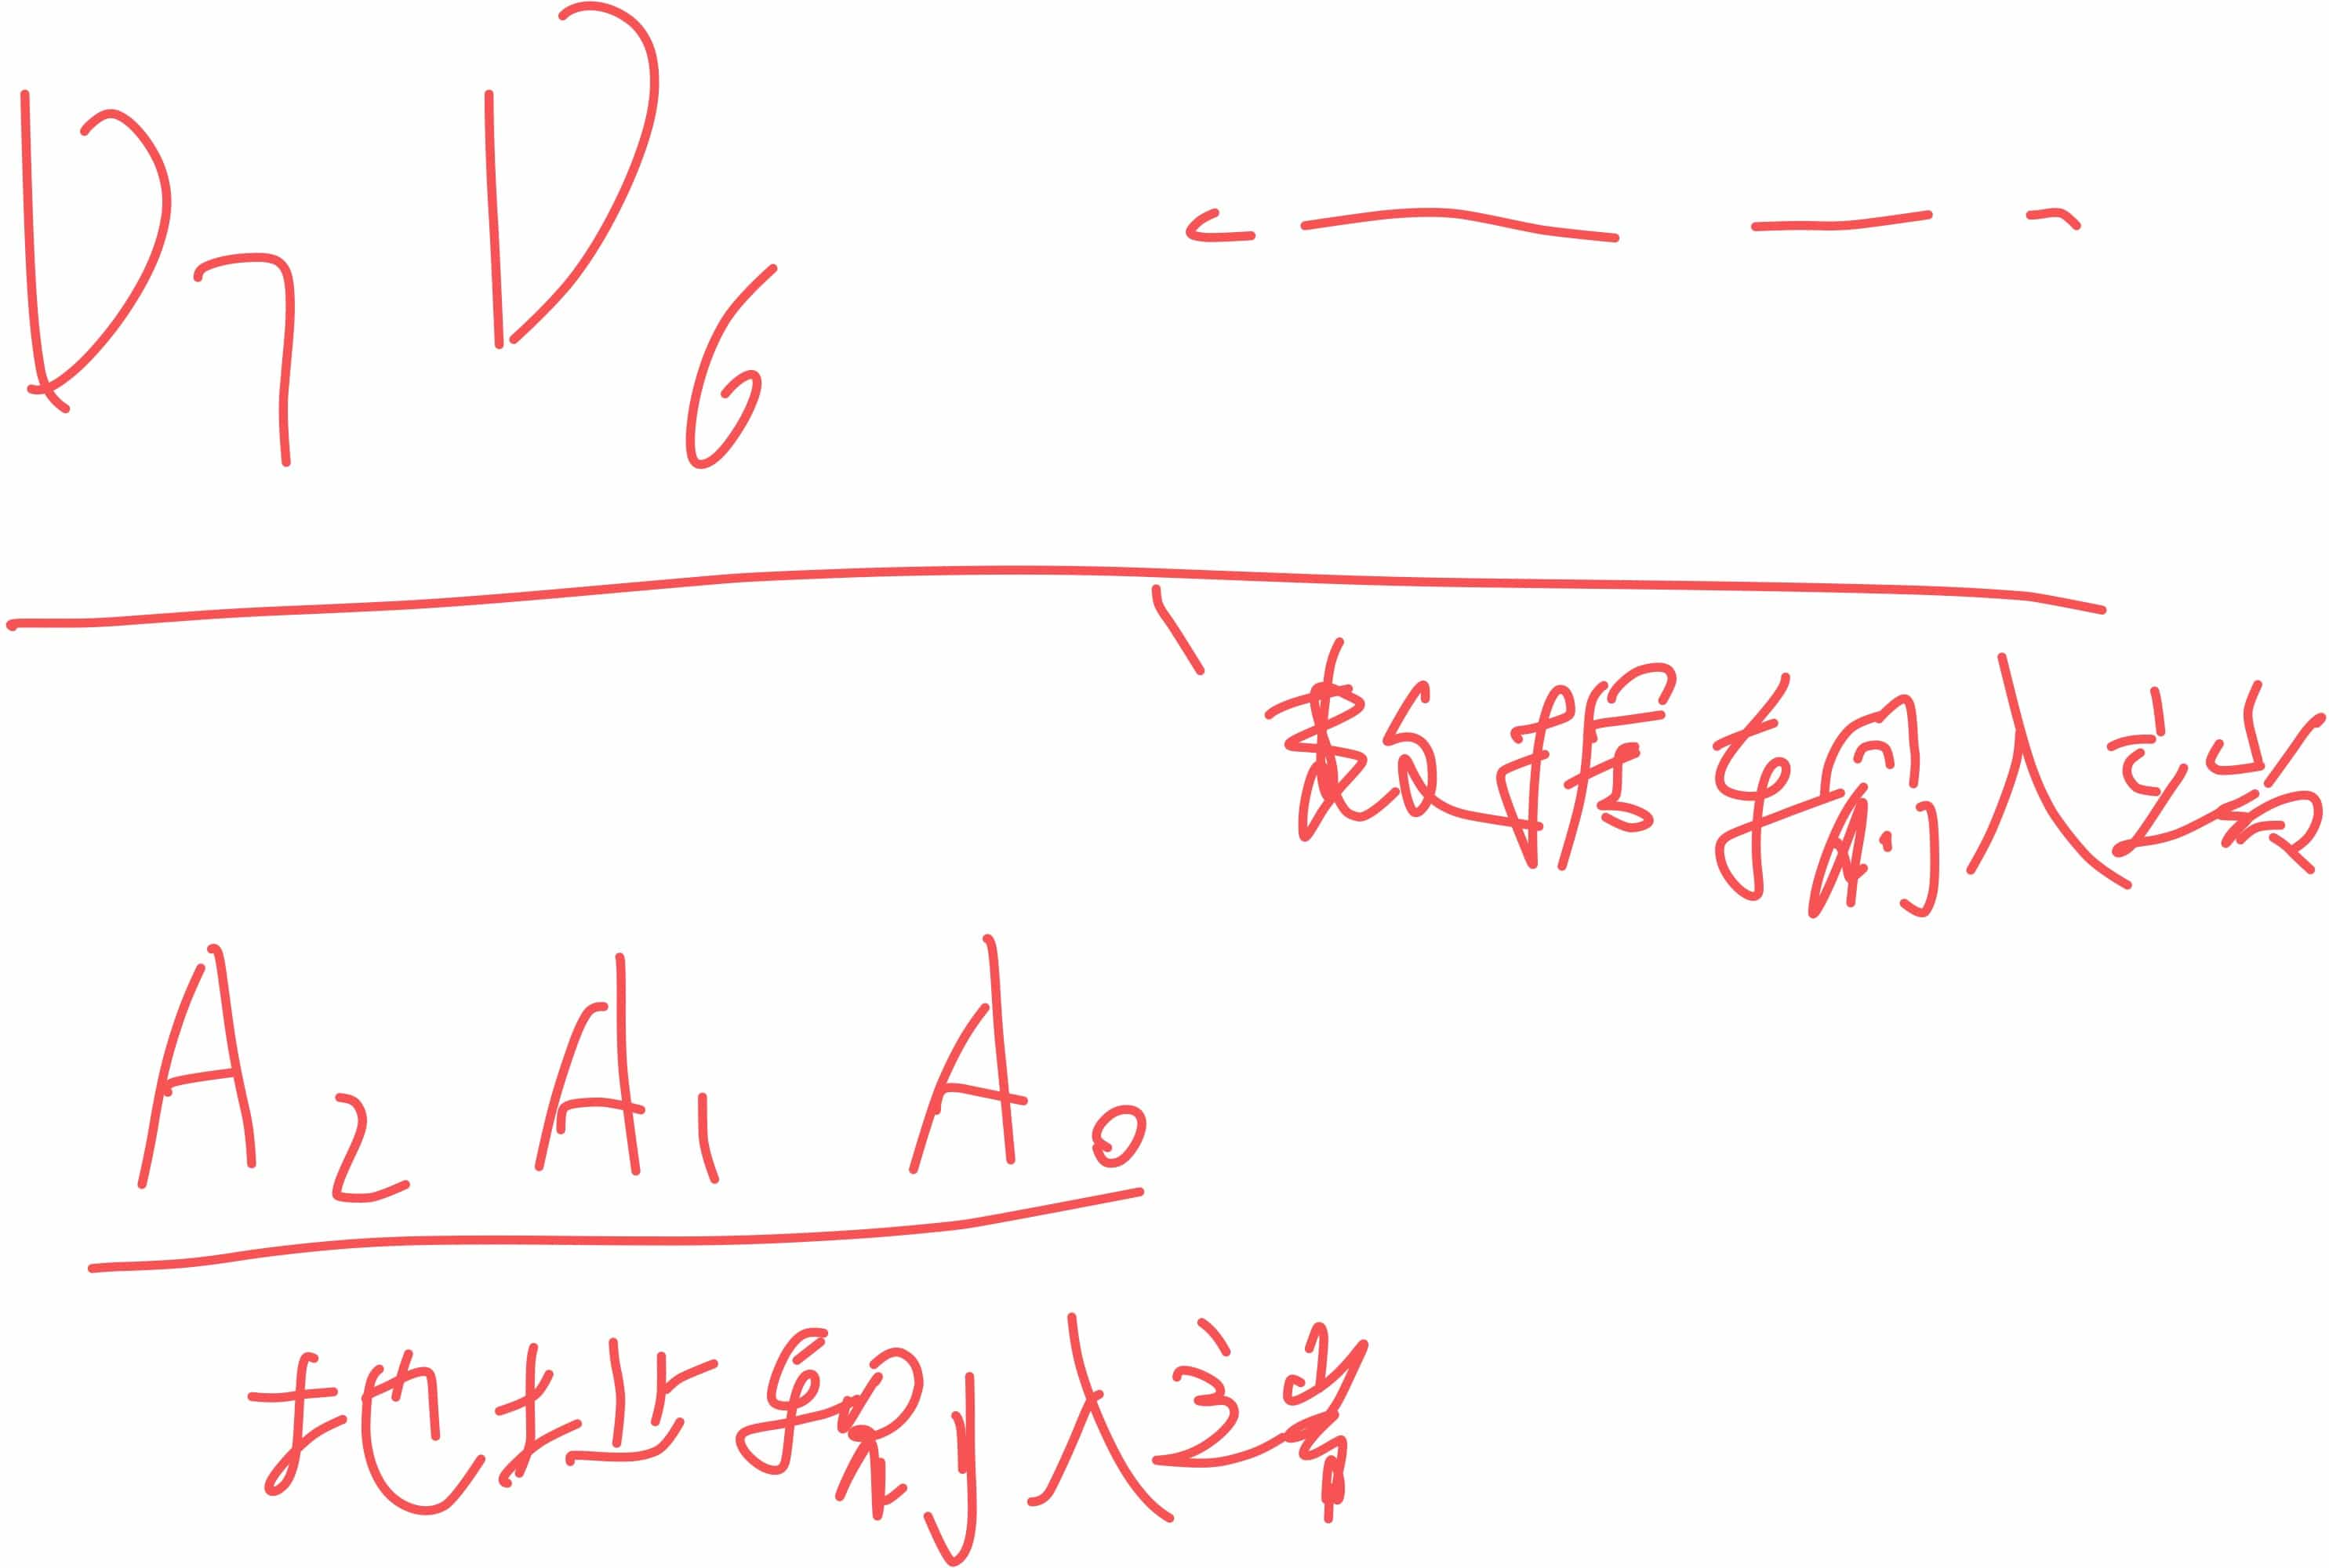 D7 D6 - - - -
数据输入端
A2 A1 A0
地址输入端